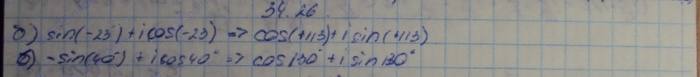 34.26
б) sin(-23°)+i cos(-23) => cos(+113)+i sin(113)
б) -sin(40°) + i cos40° => cos130° + i sin130°